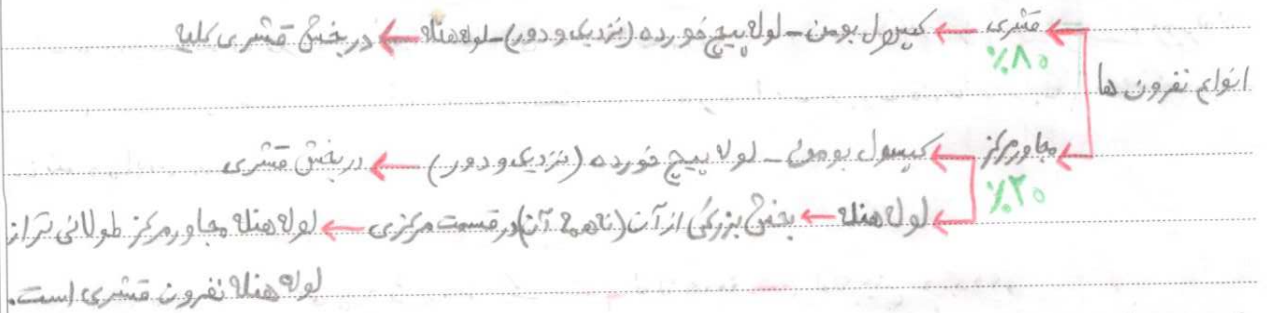 انواع نفرون ها
قشری ← کپسول بومن - لوله پیچ خورده (نزدیک و دور) - لوله هنله ← در بخش قشری کلیه
%۸۰
مجاور مرکز ← کپسول بومن - لوله پیچ خورده (نزدیک و دور) ← در بخش قشری
%۲۰
لوله هنله ← بخش بزرگی از آن (نه همه آن) در قسمت مرکزی ← لوله هنله مجاور مرکز طولانی تر از
لوله هنله نفرون قشری است.